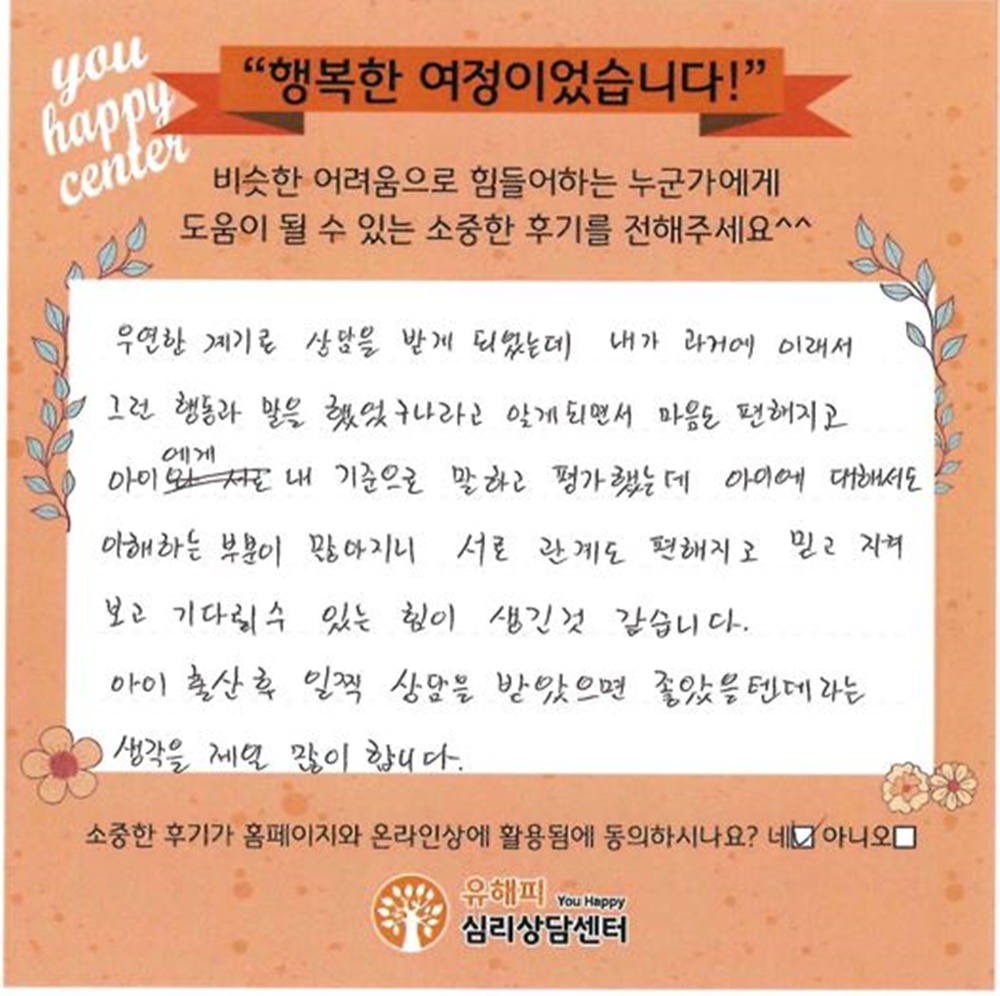 you
happy
center
“행복한 여정이었습니다!”
비슷한 어려움으로 힘들어하는 누군가에게
도움이 될 수 있는 소중한 후기를 전해주세요^^
우연한 계기로 상담을 받게 되었는데 내가 과거에 이래서
그런 행동과 말을 했었구나라고 알게되면서 마음도 편해지고
에게
아이 내 기준으로 말하고 평가했는데 아이에 대해서도
이해하는 부분이 많아지니 서로 관계도 편해지고 믿고 지켜
보고 기다릴수 있는 힘이 생긴것 같습니다.
아이 출산후 일찍 상담을 받았으면 좋았을텐데라는
생각을 제일 많이 합니다.
소중한 후기가 홈페이지와 온라인상에 활용됨에 동의하시나요? 네☑ 아니오☐
유해피 You Happy
심리상담센터